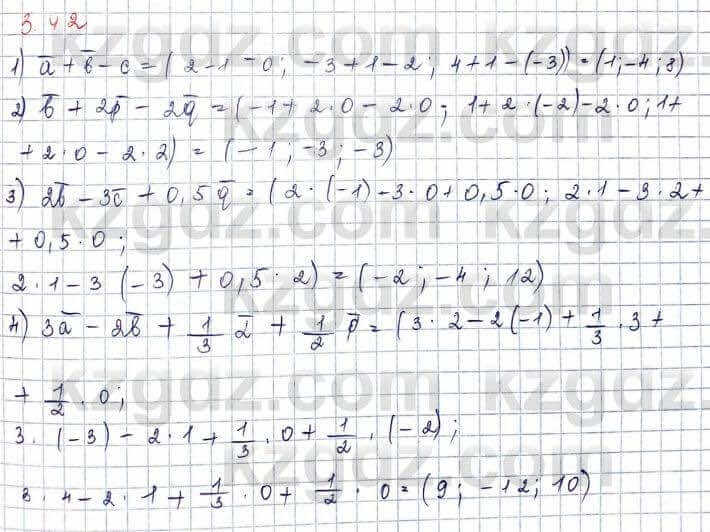 3.42
1) a̅ + b̅ - c = (2-1-0; -3+1-2; 4+1-(-3)) = (1; -4; 8)
2) b̅ + 2p̅ - 2q̅ = (-1+2·0-2·0; 1+2·(-2)-2·0; 1+
+2·0-2·2) = (-1; -3; -3)
3) 2b̅ - 3c̅ + 0,5q̅ = (2·(-1)-3·0+0,5·0; 2·1-3·2+
+0,5·0;
2·1-3(-3)+0,5·2) = (-2; -4; 12)
4) 3a̅ - 2b̅ + 1/3 i̅ + 1/2 p̅ = (3·2-2(-1)+1/3·3+
+ 1/2·0;
3·(-3)-2·1+1/3·0+1/2·(-2);
3·4-2·1+1/3·0+1/2·0 = (9; -12; 10)
kzgdz.com
kzgdz.com
kzgdz.com
kzgdz.com
kzgdz.com
kzgdz.com